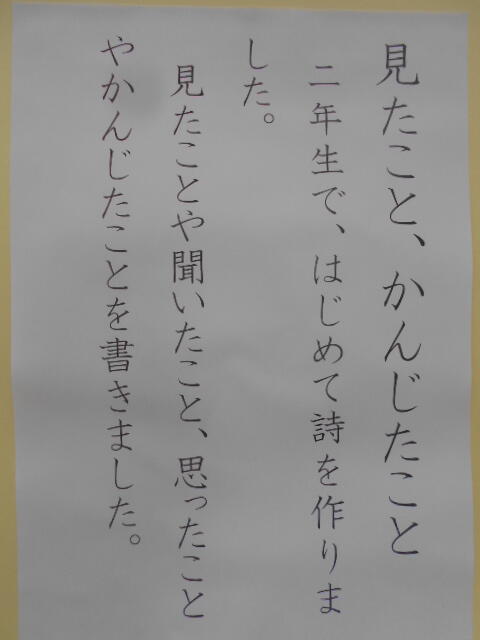 見たこと、かんじたこと
二年生で、はじめて詩を作りま
した。
見たことや聞いたこと、思ったこと
やかんじたことを書きました。